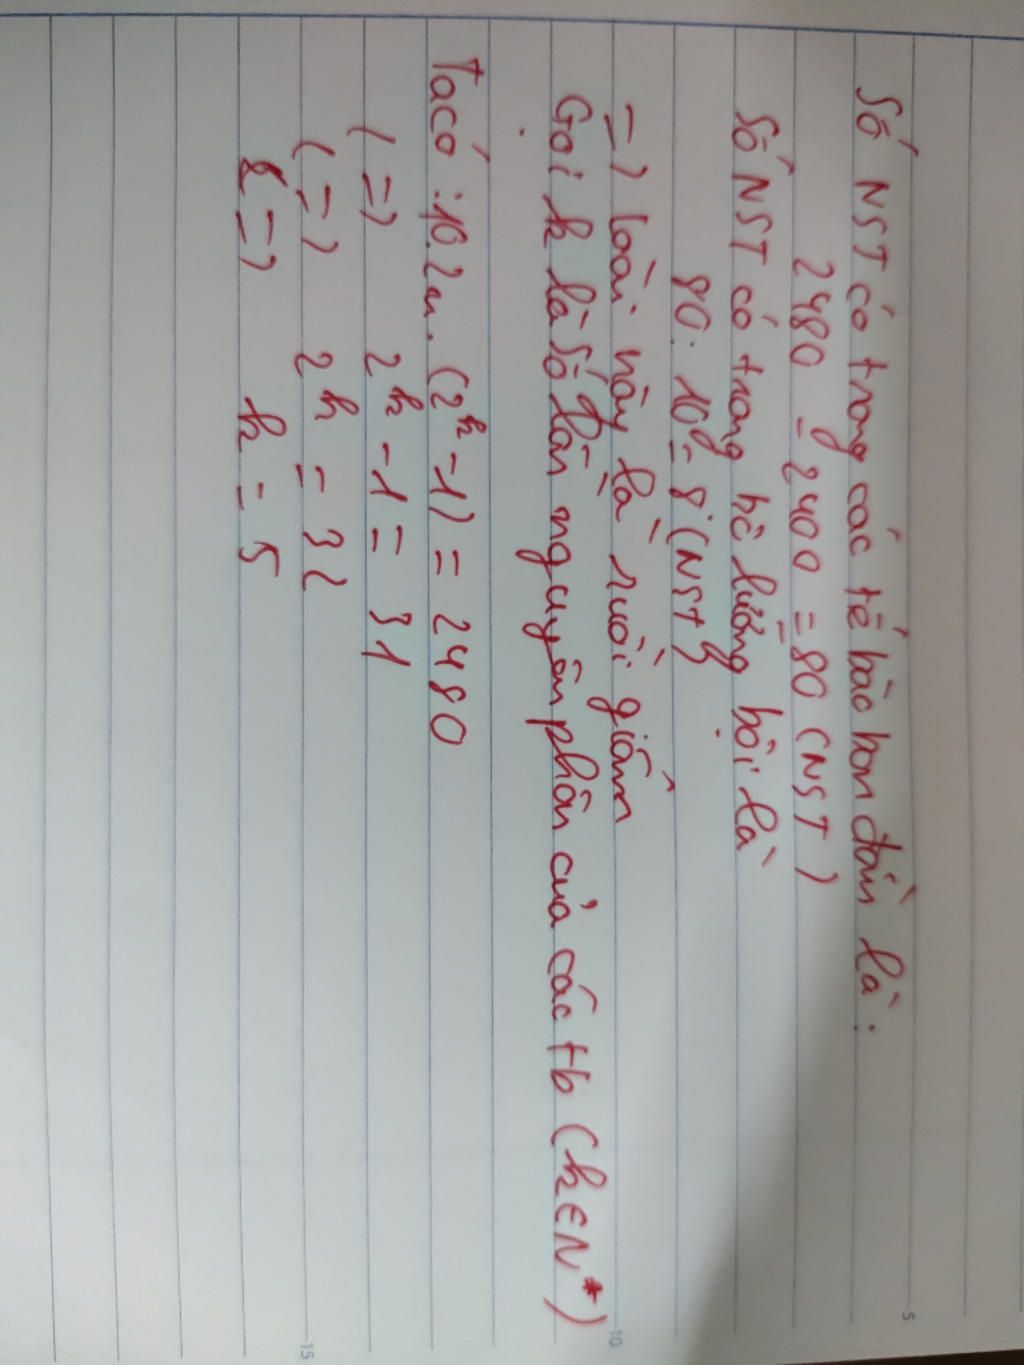 Số NST có trong các tế bào ban đầu là:
2480 - 2400 = 80 (NST)
Số NST có trong bộ lưỡng bội là
80 : 10 = 8 (NST)
=) loài này là ruồi giấm
Gọi k là số lần nguyên phân của các tb (k ∈ N*)
Ta có : 10.2n. (2^k - 1) = 2480
(=) 2^k - 1 = 31
(=) 2^k = 32
(=) k = 5
5
10
15